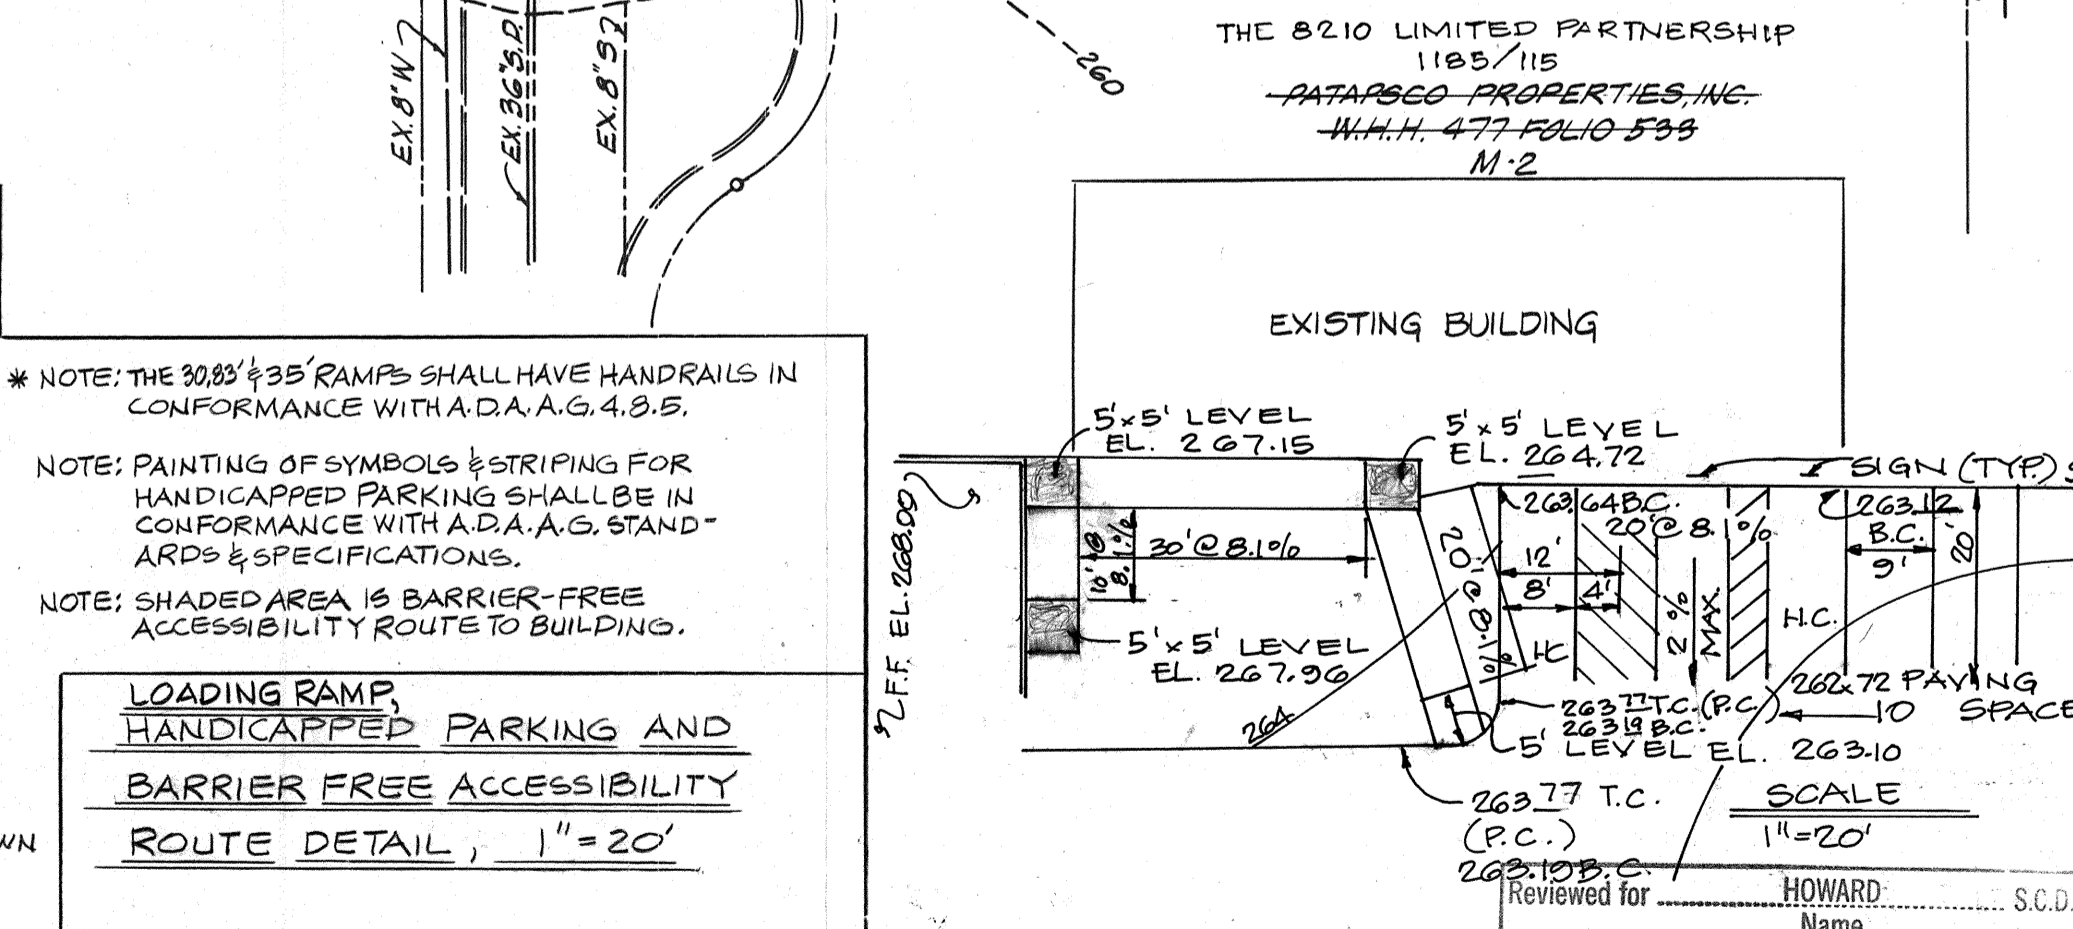 EX. 8" W
EX. 36" S.D.
EX. 8" S
260
THE 8210 LIMITED PARTNERSHIP
1185/115
PATAPSCO PROPERTIES, INC.
W.H.H. 477 FOLIO 533
M-2
EXISTING BUILDING
* NOTE: THE 30,83' & 35' RAMPS SHALL HAVE HANDRAILS IN
CONFORMANCE WITH A.D.A.A.G. 4.8.5.
NOTE: PAINTING OF SYMBOLS & STRIPING FOR
HANDICAPPED PARKING SHALL BE IN
CONFORMANCE WITH A.D.A.A.G. STAND-
ARDS & SPECIFICATIONS.
NOTE: SHADED AREA IS BARRIER-FREE
ACCESSIBILITY ROUTE TO BUILDING.
LOADING RAMP,
HANDICAPPED PARKING AND
BARRIER FREE ACCESSIBILITY
ROUTE DETAIL, 1"=20'
WN
F.F. EL. 268.09
5'x5' LEVEL
EL. 267.15
5'x5' LEVEL
EL. 264.72
SIGN (TYP.) S
10' @
8.1%
30' @ 8.1%
5'x5' LEVEL
EL. 267.96
20' @ 8.1%
263.64 B.C.
20' @ 8.1%
12'
8'
4'
HC
2%
MAX.
H.C.
263.12
B.C.
9'
20'
264
263.77 T.C. (P.C.)
263.19 B.C.
5' LEVEL EL. 263.10
262x72 PAVING
10 SPACE
263.77 T.C.
(P.C.)
263.19 B.C.
SCALE
1"=20'
Reviewed for HOWARD S.C.D.
Name